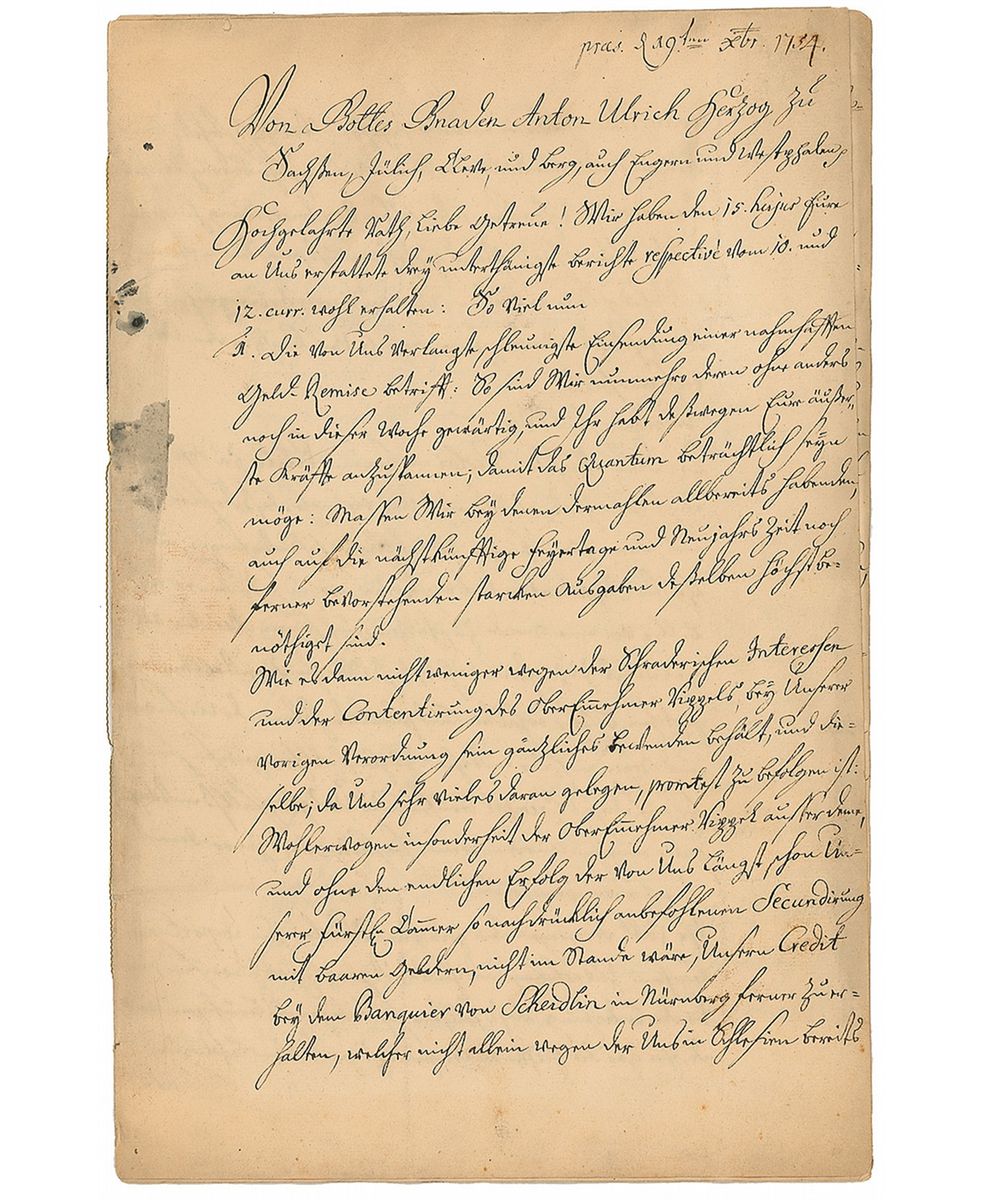 præs. d 19.ten Xbr. 1754.
Von Gottes Gnaden Anton Ulrich Herzog zu
Sachßen, Jülich, Cleve, und Berg, auch Engern und Westphalen,
Hochgelahrte Räth, Liebe Getreue! Wir haben den 15. hujus Eure
an Uns erstattete drey unterthänigste berichte respectivè vom 10. und
12. curr. wohl erhalten: So viel nun
1. Die von Uns verlangte schleunigste Einsendung einer nahmhafften
Geld-Remise betrifft: So sind Wir nunmehro deren ohne anders
noch in dieser Woche gewärtig, und Ihr habt deßwegen Eure äußer-
ste Kräffte anzuspannen; damit das Quantum beträchtlich seyn
möge: Massen Wir bey denen dermahlen allbereits habenden,
auch auf die nächstkünfftige Feyertage und Neujahrs Zeit noch
ferner bevorstehenden starcken Ausgaben deßelben höchst be-
nöthigst sind.
Wie es dann nicht weniger wegen der Schraderischen Interessen
und der Contentirung des OberEinnehmer Rippels, bey Unserer
vorigen Verordnung sein gänzliches bewenden behält, und die-
selbe; da Uns sehr vieles daran gelegen, promtest zu befolgen ist:
Wohlerwogen insonderheit der OberEinnehmer Rippel ausser deme,
und ohne den endlichen Erfolg der von Uns längst schon Un-
serer Fürstln Cammer so nachdrücklich anbefohlenen Secundirung
mit baaren Geldern, nicht im Stande wäre, Unsern Credit
bey dem Banquier von Scheidlin in Nürnberg ferner zu er-
halten, welcher nicht allein wegen der Uns in Schlesien bereits